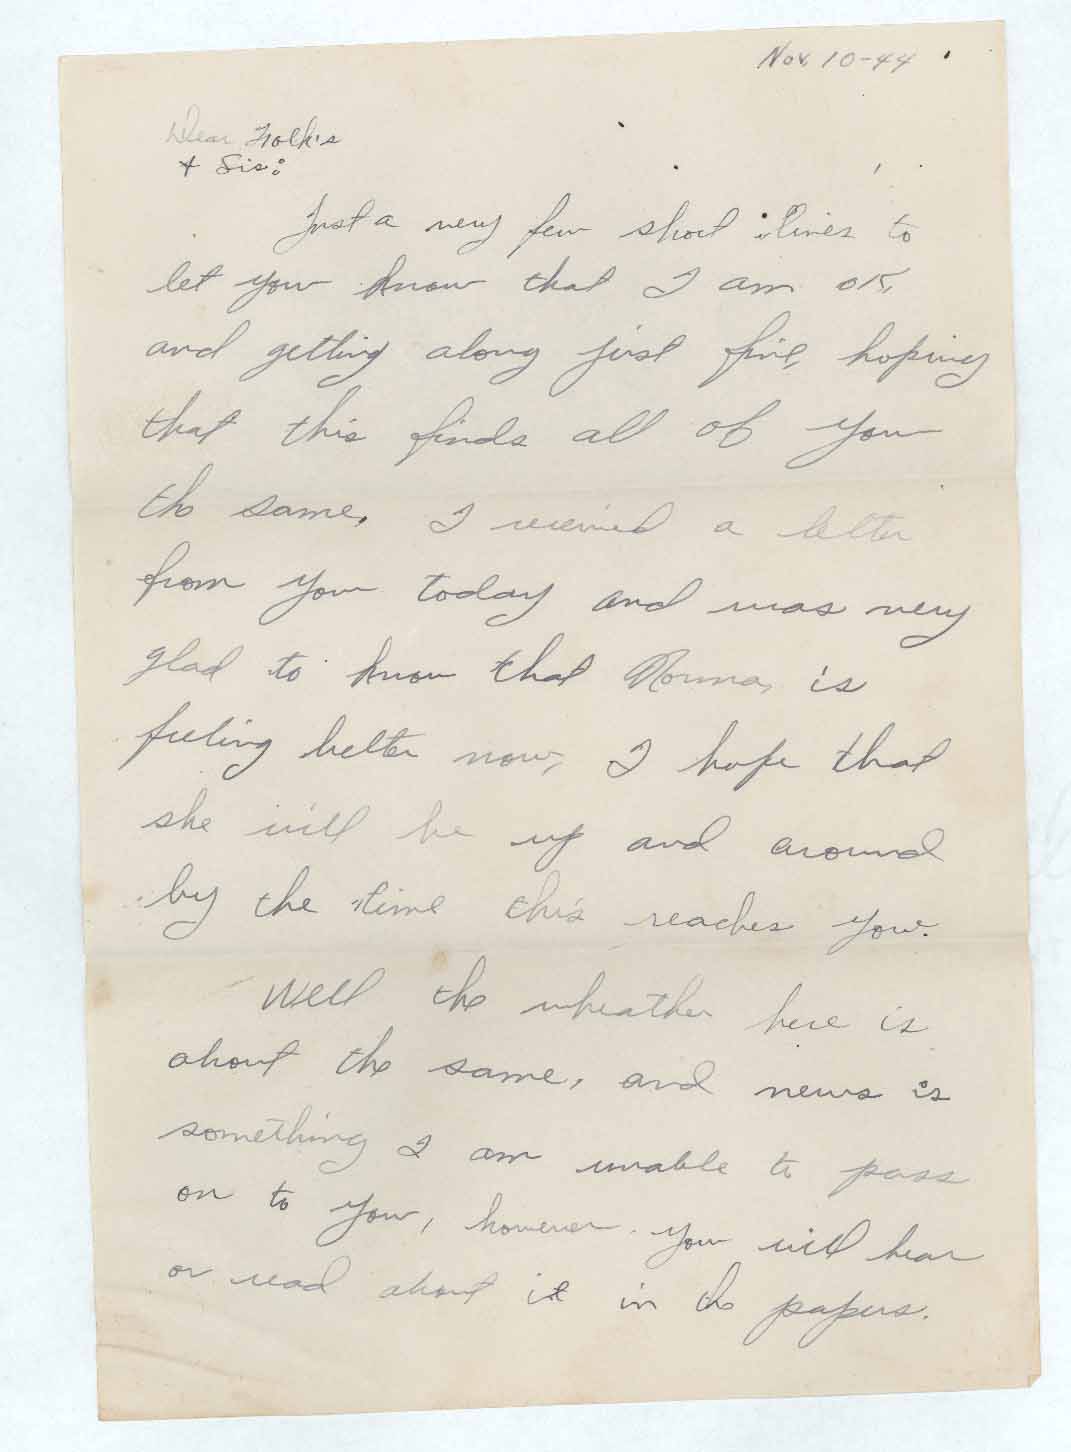 Nov. 10-44
Dear Folk's
& Sis:
Just a very few short lines to
let you know that I am OK,
and getting along just fine, hoping
that this finds all of you
the same. I received a letter
from you today and was very
glad to know that Norma, is
feeling better now, I hope that
she will be up and around
by the time this reaches you.
Well the wheather here is
about the same, and news is
something I am unable to pass
on to you, however you will hear
or read about it in the papers.